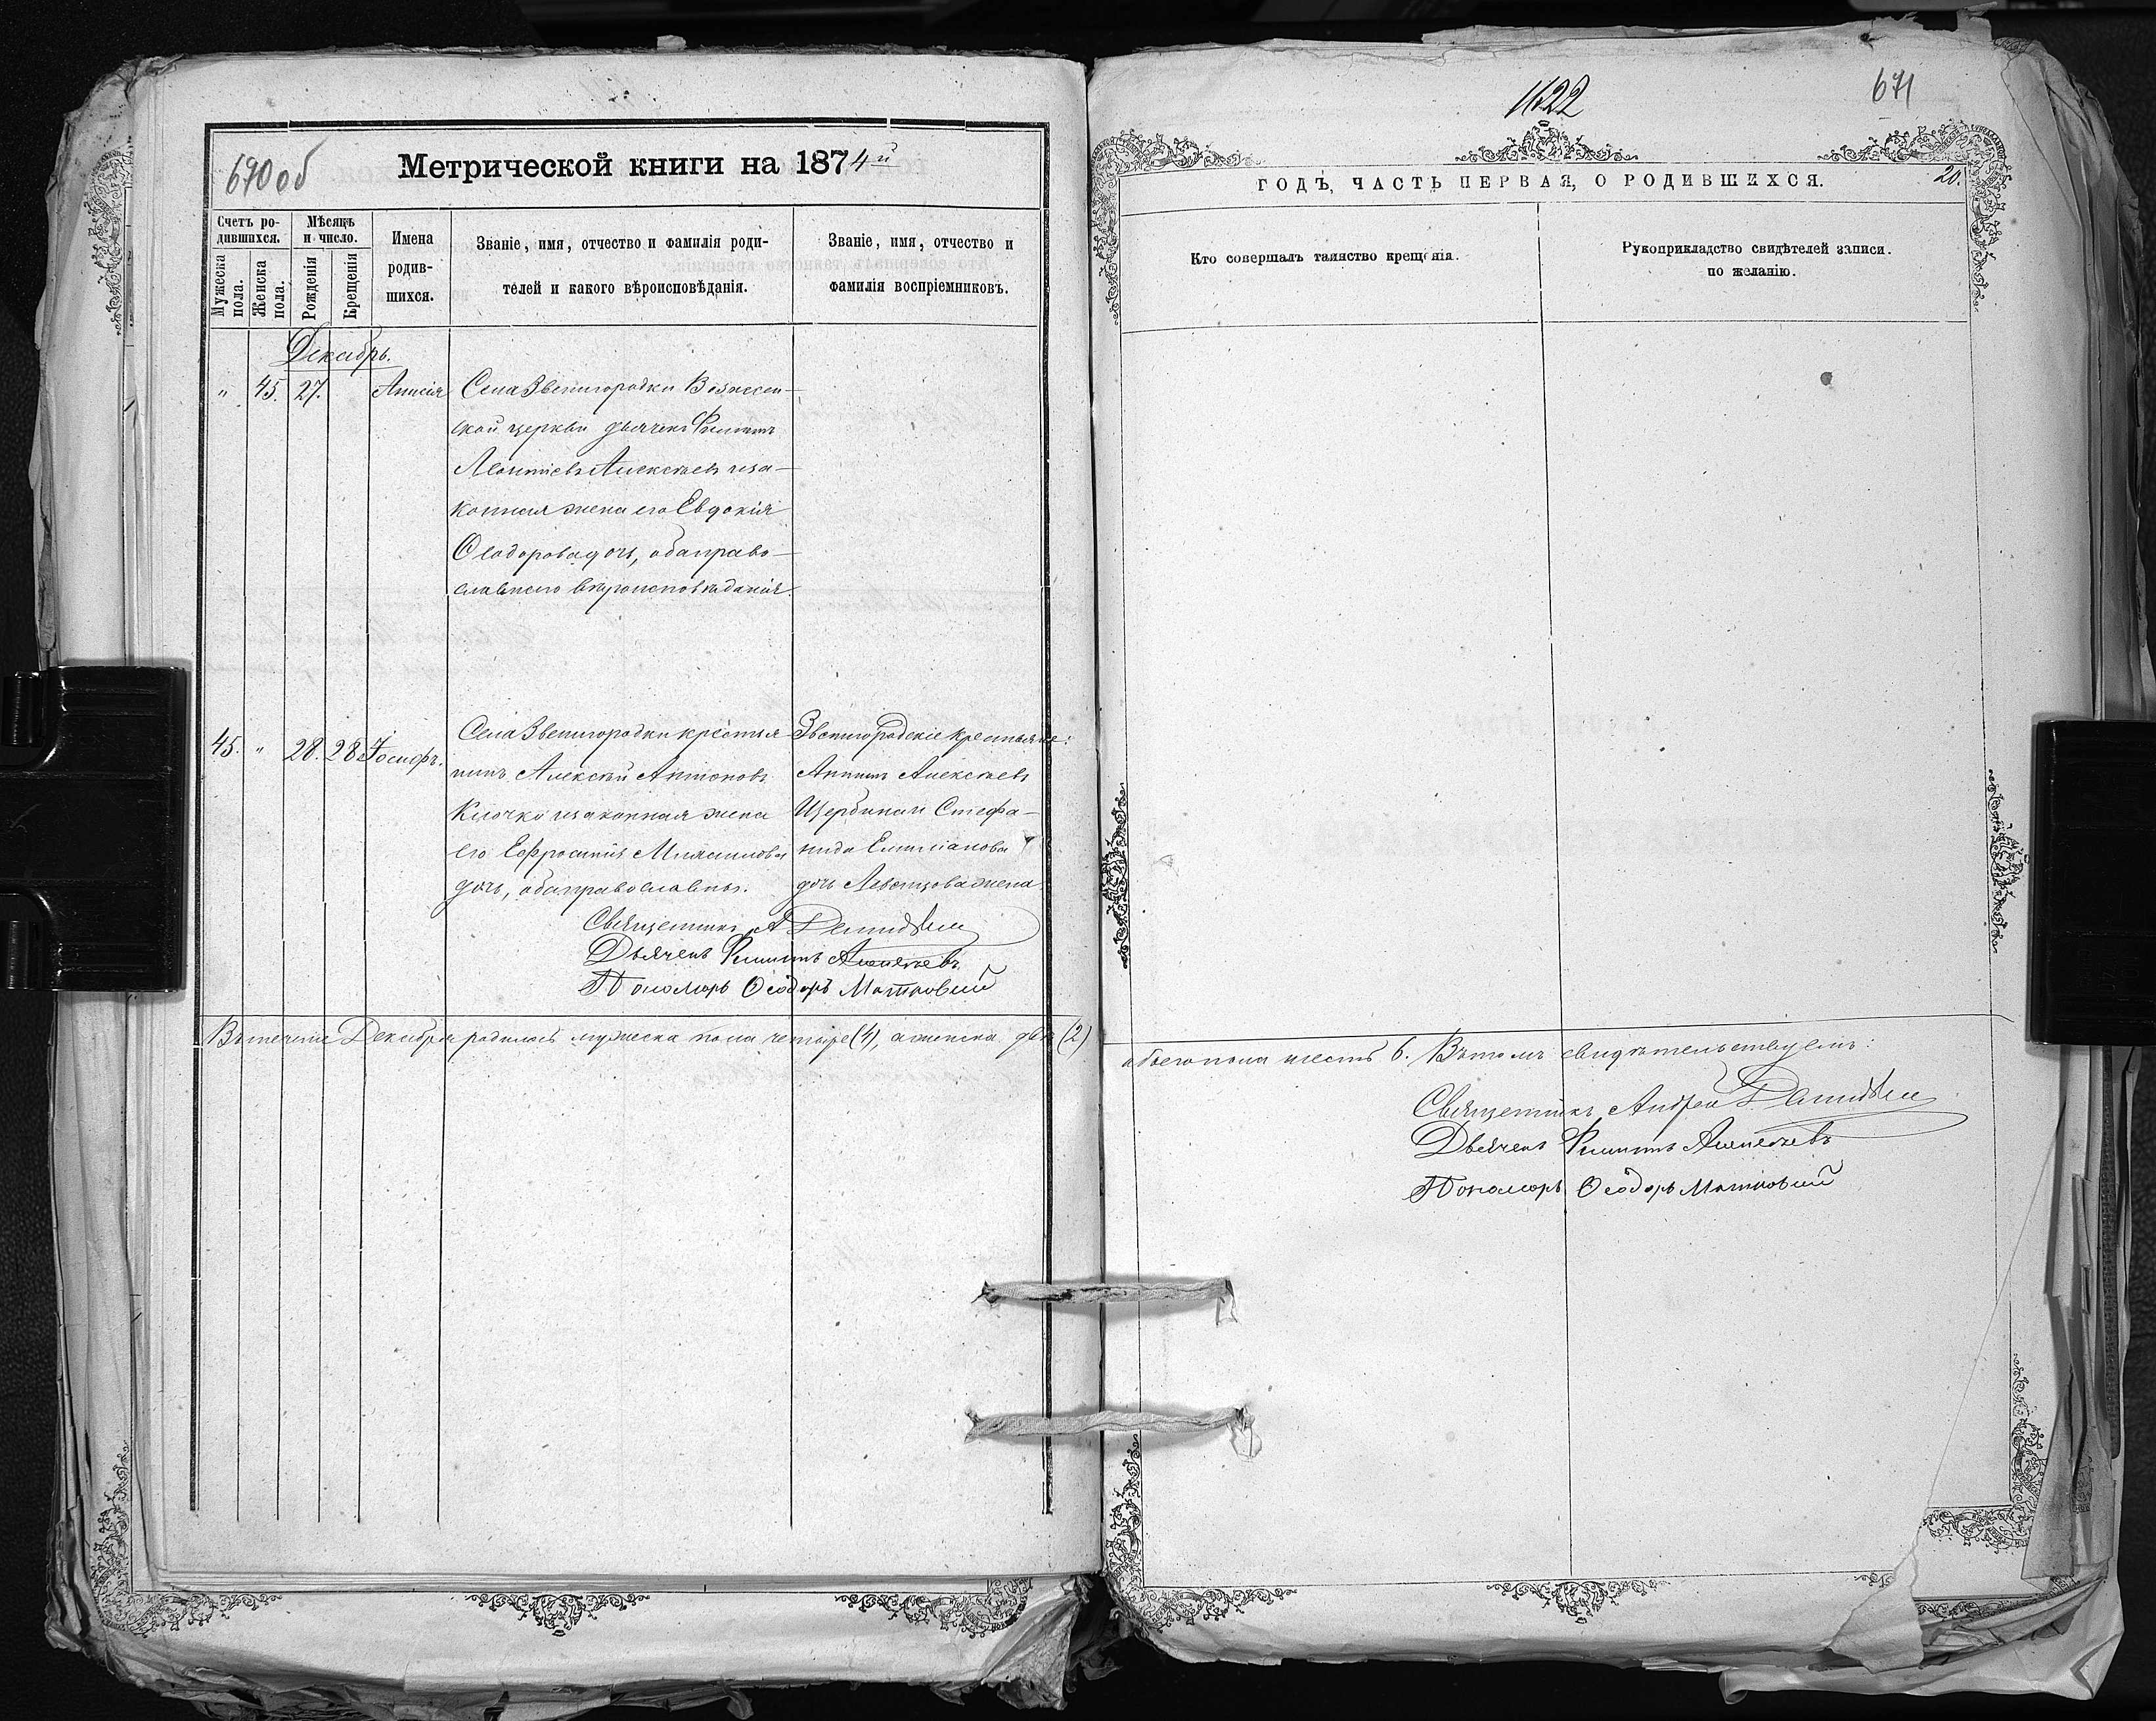 690 об
Метрической книги на 1874й
Счетъ ро-
дившихся.
Мѣсяцъ
и число.
Мужеска
пола.
Женска
пола.
Рожденія
Крещенія
Имена
родив-
шихся.
Званіе, имя, отчество и фамилія роди-
телей и какого вѣроисповѣданія.
Званіе, имя, отчество и
фамилія воспріемниковъ.
Декабрь.
" 45. 27. Анисія
Села Звенигородки Вознесен-
ской церкви дьячекъ Филиппъ
Леонтіевъ Алексѣевъ и за-
конная жена его Евдокія
Ѳеодорова дочь, оба право-
славнаго вѣроисповѣданія.
45. " 28. 28. Іосифъ.
Села Звенигородки крестья-
нинъ Алексѣй Антоновъ
Клочко и законная жена
его Ефросинія
дочь, оба православны.
Звенигородскіе крестьяне:
Алексѣевъ
Щербина и Стефа-
нида Емиліанова
дочь жена.
Священникъ А
Дьячекъ Филиппъ Алексѣевъ
Пономарь Ѳеодоръ
Въ теченіе Декабря родилось мужеска пола четыре (4), а женска двѣ (2)
1622
671
ГОДЪ, ЧАСТЬ ПЕРВАЯ, О РОДИВШИХСЯ.
20.
Кто совершалъ таинство крещенія.
Рукоприкладство свидѣтелей записи.
по желанію.
обоего пола шесть 6. Въ томъ свидѣтельствуемъ:
Священникъ Андрей
Дьячекъ Филиппъ Алексѣевъ
Пономарь Ѳеодоръ